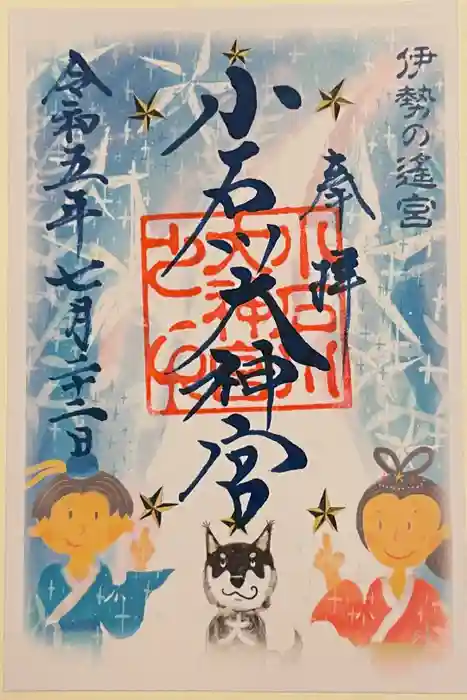 伊勢の遙宮
奉拝
小石川大神宮
令和五年七月二十二日
小石川
大神宮
之印
大